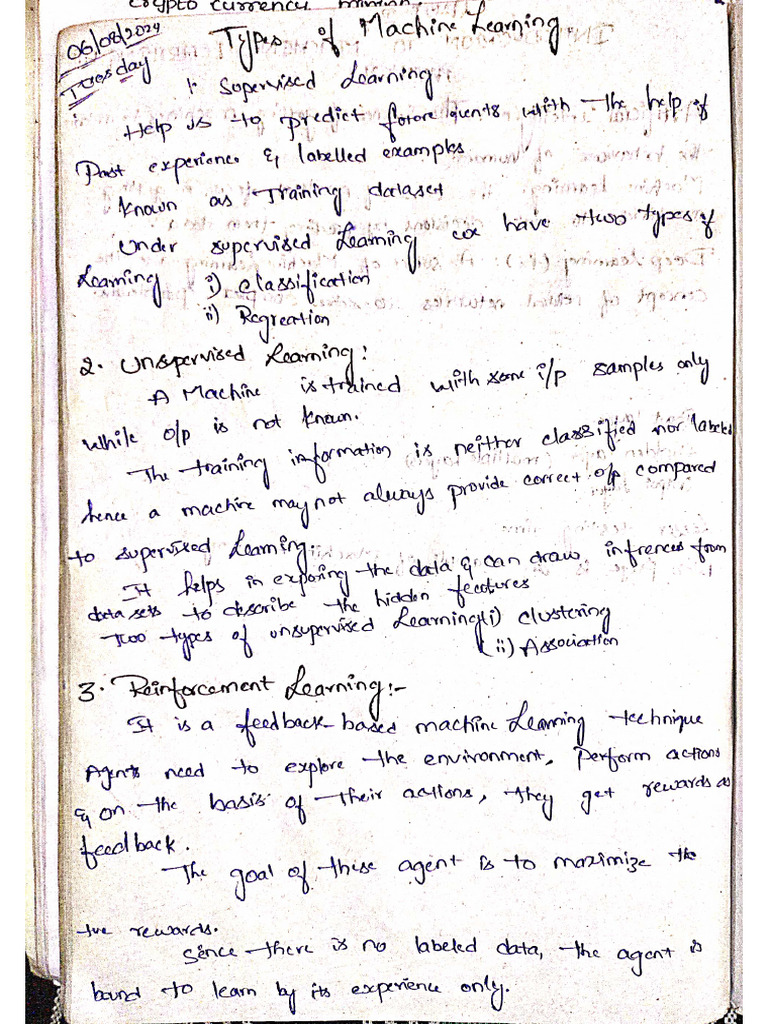 Crypto currency mining
06/08/2024
Tuesday
Types of Machine Learning
1. Supervised Learning
Help us to predict future events with the help of
Past experience & labelled examples
known as Training dataset
Under supervised Learning we have two types of
Learning i) classification
ii) Regreation
2. Unsupervised Learning:
A Machine is trained with some i/p samples only
while o/p is not known.
The training information is neither classified nor labeled
hence a machine may not always provide correct o/p compared
to supervised Learning.
It helps in exporing the data & can draw infrences from
data sets to describe the hidden features
Two types of unsupervised Learning (i) clustering
(ii) Association
3. Reinforcement Learning:-
It is a feedback-based machine Learning technique
Agents need to explore the environment, Perform actions
& on the basis of their actions, they get rewards as
feedback.
The goal of these agent is to maximize the
+ve rewards.
Since there is no labeled data, the agent is
bound to learn by its experience only.